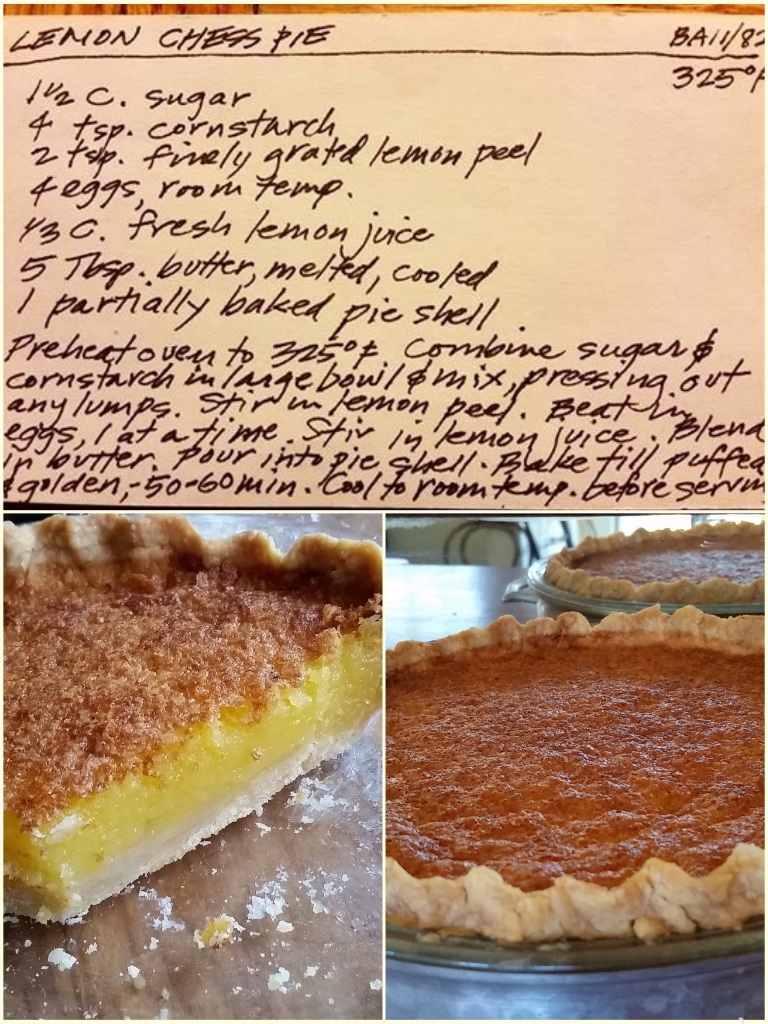 LEMON CHESS PIE BA11/82
325°F
1 1/2 C. sugar
4 tsp. cornstarch
2 tsp. finely grated lemon peel
4 eggs, room temp.
1/3 C. fresh lemon juice
5 Tbsp. butter, melted, cooled
1 partially baked pie shell
Preheat oven to 325°F Combine sugar &
cornstarch in large bowl & mix, pressing out
any lumps. Stir in lemon peel. Beat in
eggs, 1 at a time. Stir in lemon juice. Blend
in butter. Pour into pie shell. Bake till puffed
& golden, -50-60 min. Cool to room temp. before servin